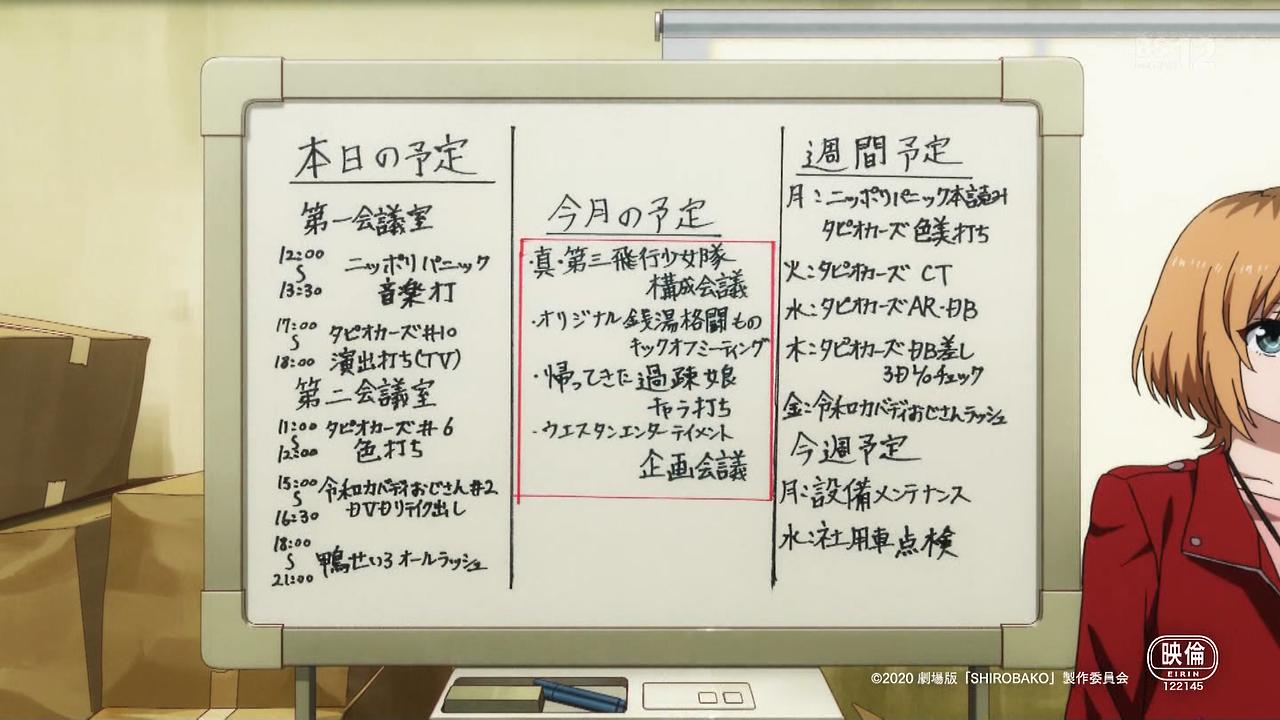 本日の予定
第一会議室
12:00
〜
13:30
ニッポリパニック
音楽打
17:00
〜
18:00
タピオカーズ#10
演出打ち(TV)
第二会議室
11:00
〜
12:00
タピオカーズ#6
色打ち
15:00
〜
16:30
令和カバディおじさん#2
BVBリテイク出し
18:00
〜
21:00
鴨せいろ オールラッシュ
今月の予定
・真・第三飛行少女隊
構成会議
・オリジナル銭湯格闘もの
キックオフミーティング
・帰ってきた過疎娘
キャラ打ち
・ウエスタンエンターテイメント
企画会議
週間予定
月:ニッポリパニック本読み
タピオカーズ 色美打ち
火:タピオカーズ CT
水:タピオカーズ AR・DB
木:タピオカーズ DB差し
チェック
金:令和カバディおじさんラッシュ
今週予定
月:設備メンテナンス
水:社用車点検
©2020 劇場版「SHIROBAKO」製作委員会
映倫
EIRIN
122145